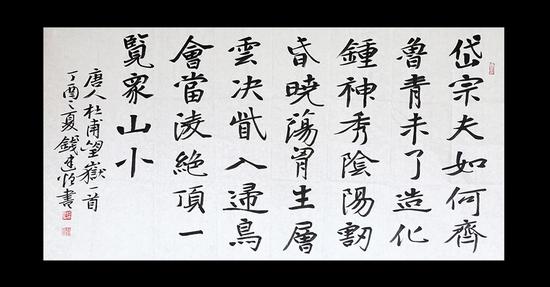 岱宗夫如何齊
魯青未了造化
鍾神秀陰陽割
昏曉蕩胷生層
雲决眥入歸鳥
會當淩絕頂一
覽衆山小
唐人杜甫望嶽一首
丁酉之夏錢建書